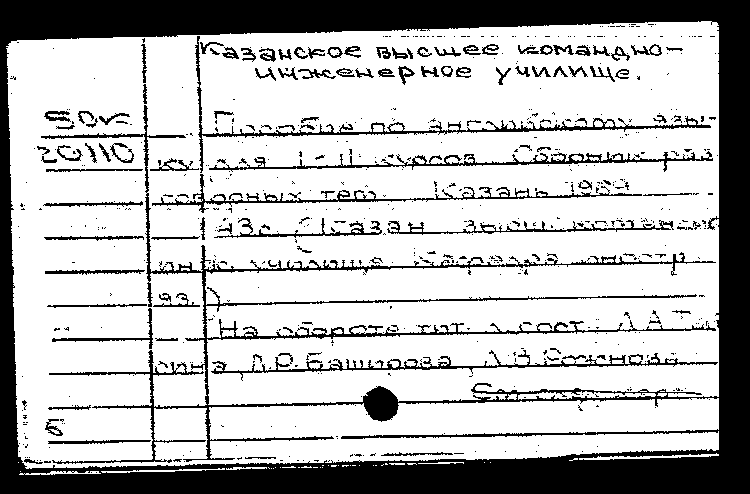 Казанское высшее командно-
инженерное училище.
50к
20110
Пособие по английскому язы-
ку для I-II курсов Сборник раз
говорных тем. Казань 1989
43с. (Казан высш. командно
инж. училище Кафедра иностр
яз.)
На обороте тит. л. сост.: Л.А.
сина, Л.Р. Баширова, Л.В. Рожнова
См. след. карт.